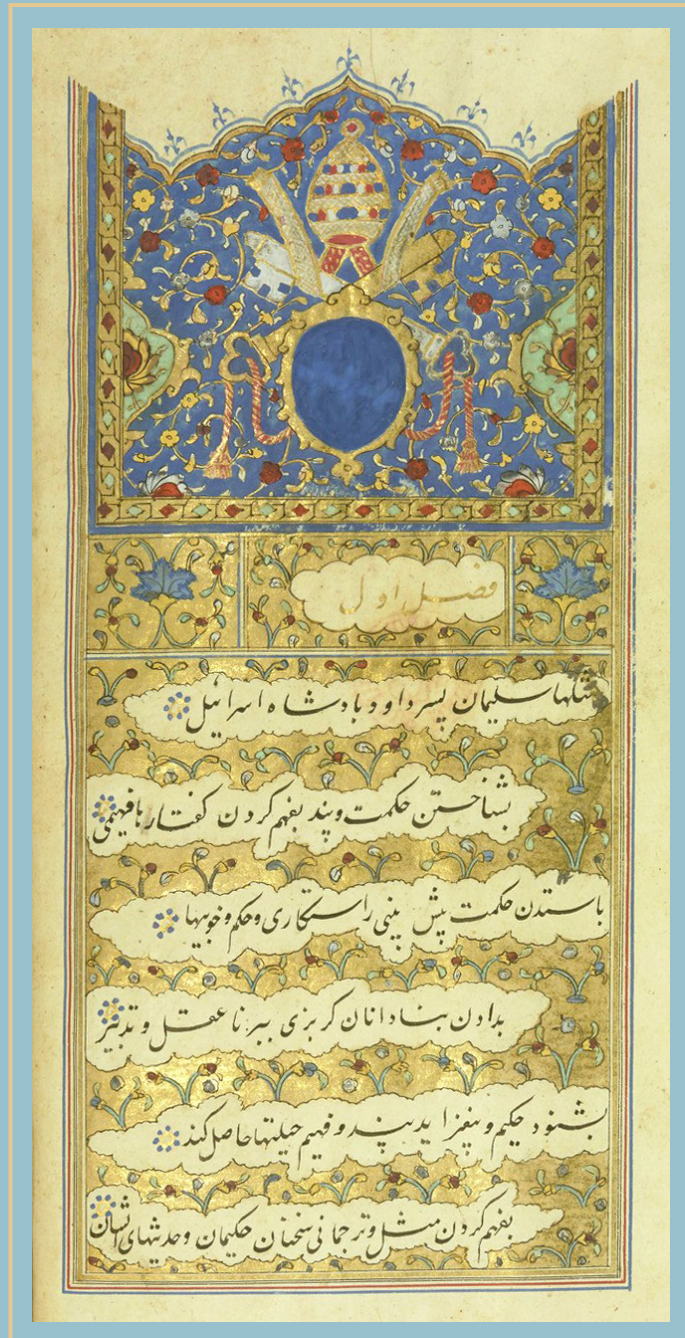 فصل اول
مثلها سلیمان پسر داود بادشاه اسرائیل
بشناختن حکمت و پند بفهم کردن کفتارها فهیمی
باستدن حکمت پیش بینی راستکاری و حکم و خوبیها
بدادن بنادانان کربزی ببرنا عقل و تدبیر
بشنود حکیم و بیفزاید پند و فهیم حیلتها حاصل کند
بفهم کردن مثل و ترجمانی سخنان حکیمان و حدیثهای ایشان